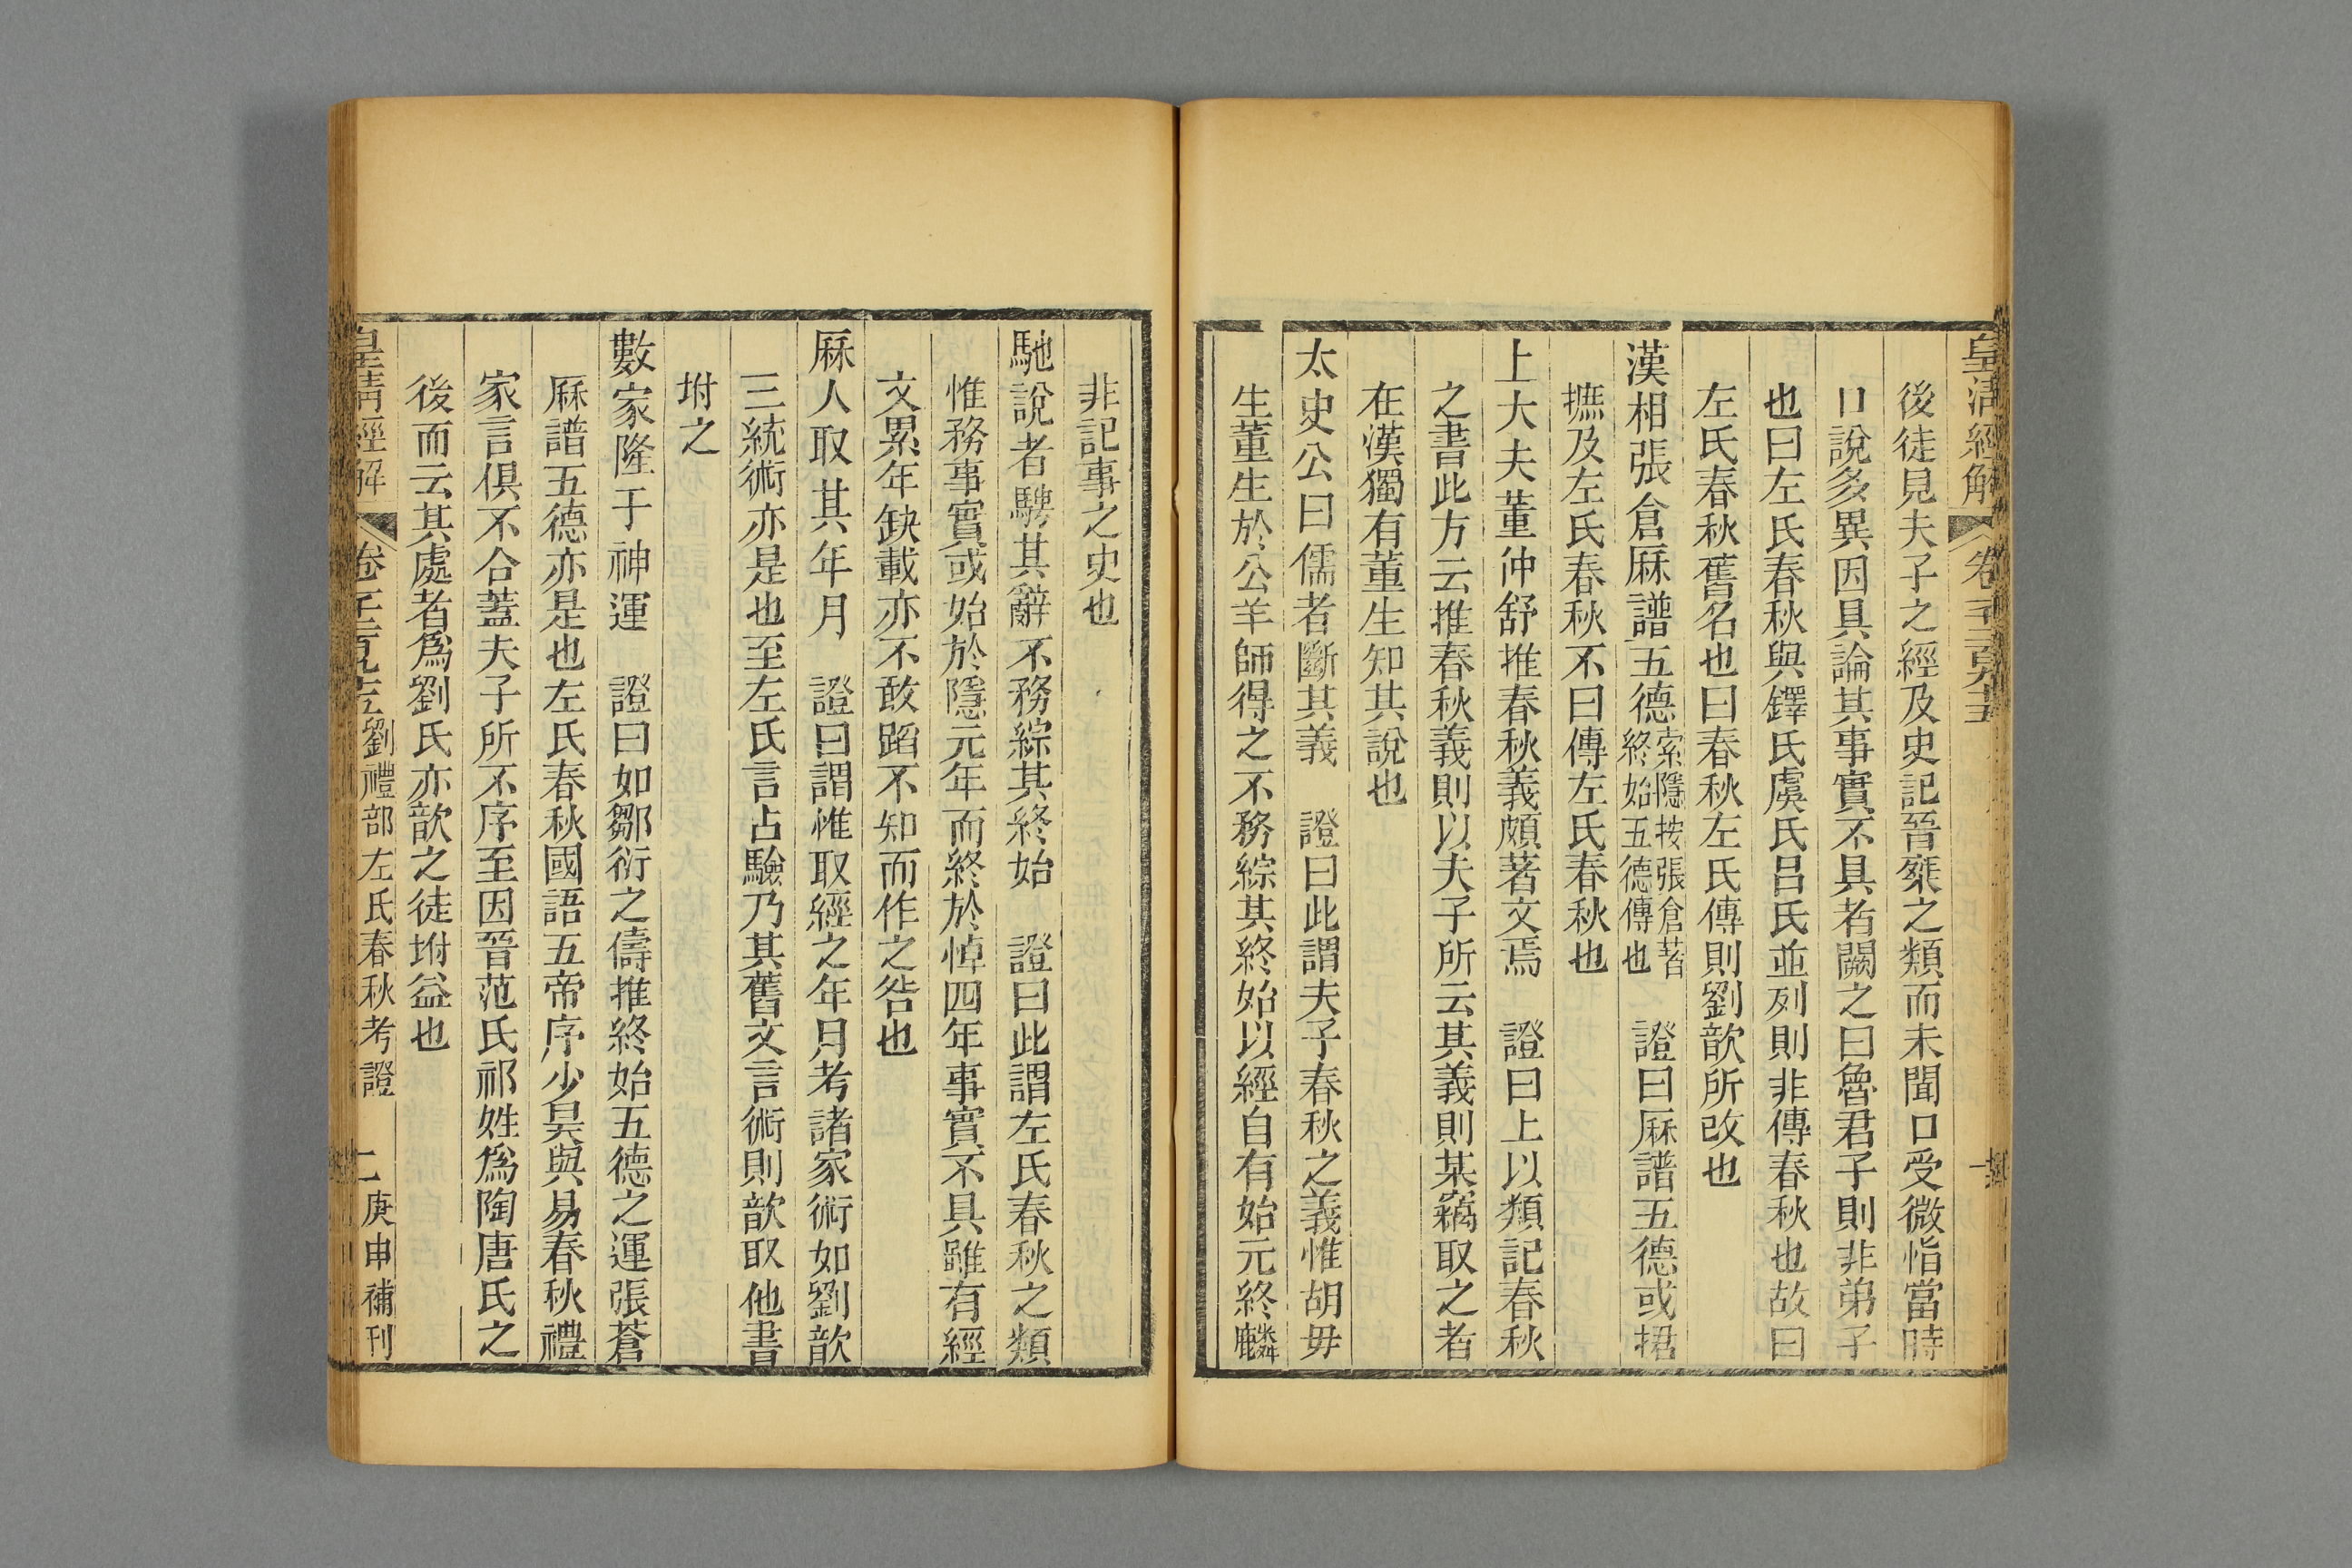 皇清經解
後徒見夫子之經及史記晉椉之類而未聞口受微恉當時
口說多異因具論其事實不具者闕之曰魯君子則非弟子
也曰左氏春秋與鐸氏虞氏呂氏並列則非傳春秋也故曰
左氏春秋舊名也曰春秋左氏傳則劉歆所改也
漢相張倉厤譜五德索隱按張倉著終始五德傳也　證曰厤譜五德或捃
摭及左氏春秋不曰傳左氏春秋也
上大夫董仲舒推春秋義頗著文焉　證曰上以類記春秋
之書此方云推春秋義則以夫子所云其義則某竊取之者
在漢獨有董生知其說也
太史公曰儒者斷其義　證曰此謂夫子春秋之義惟胡毋
生董生於公羊師得之不務綜其終始以經自有始元終麟
非記事之史也
馳說者騁其辭不務綜其終始　證曰此謂左氏春秋之類
惟務事實或始於隱元年而終於悼四年事實不具雖有經
文累年缺載亦不敢蹈不知而作之咎也
厤人取其年月　證曰謂惟取經之年月考諸家術如劉歆
三統術亦是也至左氏言占驗乃其舊文言術則歆取他書
坿之
數家隆于神運　證曰如鄒衍之儔推終始五德之運張蒼
厤譜五德亦是也左氏春秋國語五帝序少昊與易春秋禮
家言俱不合蓋夫子所不序至因晉范氏祁姓爲陶唐氏之
後而云其處者爲劉氏亦歆之徒坿益也
皇清經解
劉禮部左氏春秋考證
二
庚申補刊